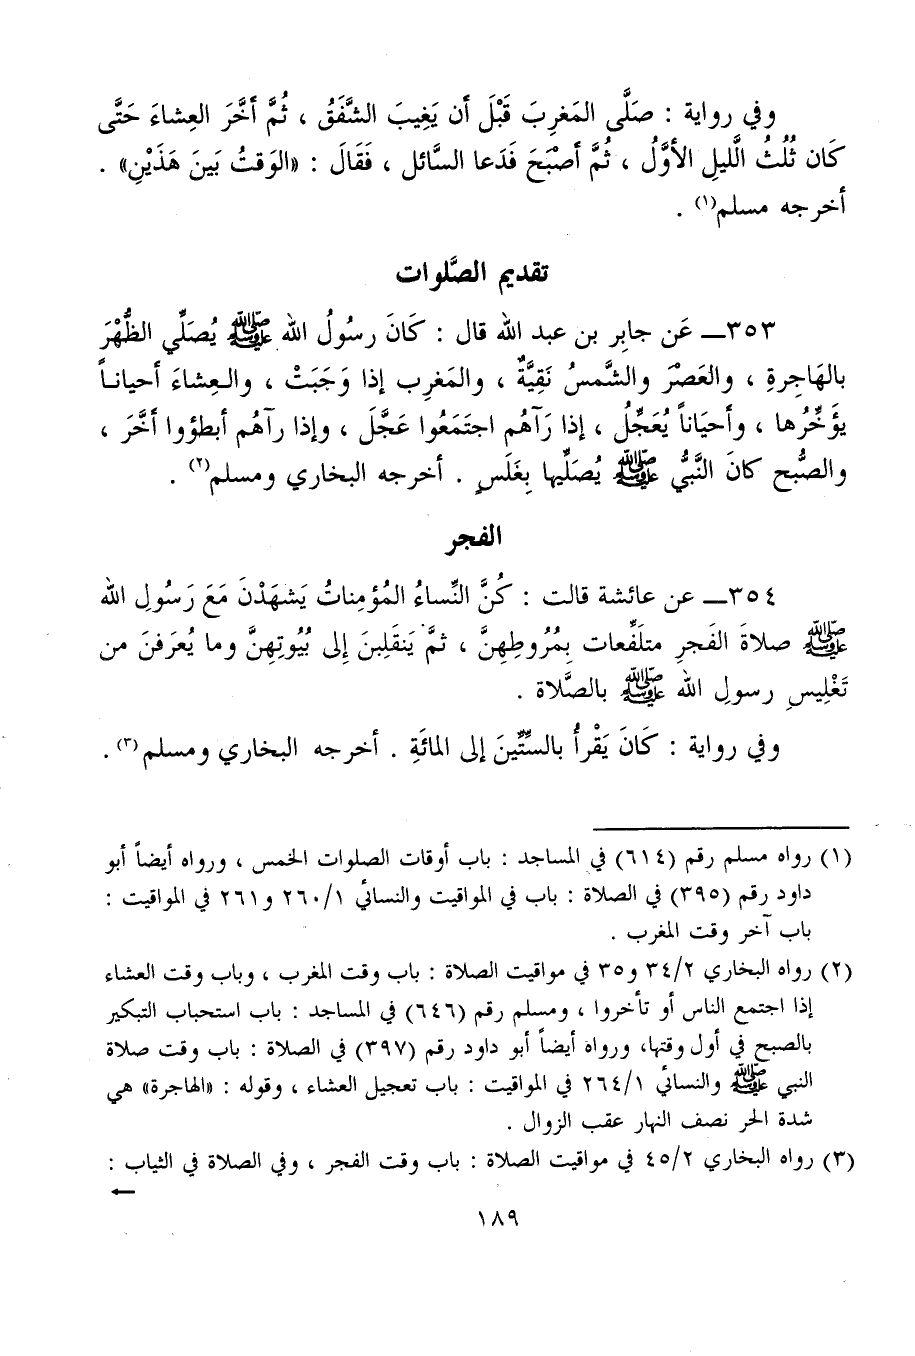 وفي رواية : صَلَّى المَغرِبَ قَبْلَ أن يَغِيبَ الشَّفَقُ ، ثُمَّ أخَّرَ العِشاءَ حَتَّى
كَان ثُلُثُ الَّليلِ الأوَّلُ ، ثُمَّ أصْبَحَ فَدَعا السَّائل ، فَقَالَ : «الوَقتُ بَينَ هَذَيْنِ» .
أخرجه مسلم(١) .
تقديم الصَّلوات
٣٥٣ــ عَن جابِر بن عبد الله قال : كَانَ رسُولُ الله ﷺ يُصَلِّي الظُّهْرَ
بالهَاجِرةِ ، والعَصْرَ والشَّمسُ نَقِيَّةٌ ، والمَغرِب إذا وَجَبَتْ ، والعِشاءَ أحياناً
يؤَخِّرُها ، وأحيَاناً يُعَجِّلُ ، إذا رَآهُم اجتَمَعُوا عَجَّلَ ، وإذا رآهُم أبطؤوا أخَّرَ ،
والصُّبح كانَ النَّبيُّ ﷺ يُصَلِّيها بِغَلَسٍ . أخرجه البخاري ومسلم(٢) .
الفجر
٣٥٤ــ عن عائشة قالت : كُنَّ النِّساءُ المُؤمِناتُ يَشهَدْنَ مَعَ رَسُولِ الله
ﷺ صلاةَ الفَجرِ متلَفِّعات بِمُرُوطِهِنَّ ، ثمَّ يَنقَلِبنَ إلى بُيُوتِهِنَّ وما يُعرَفنَ من
تَغْلِيسِ رسولِ الله ﷺ بالصَّلاة .
وفي رواية : كَانَ يَقْرأُ بالسِّتِّينَ إلى المائَةِ . أخرجه البخاري ومسلم(٣) .
(١) رواه مسلم رقم (٦١٤) في المساجد : باب أوقات الصلوات الخمس ، ورواه أيضاً أبو
داود رقم (٣٩٥) في الصلاة : باب في المواقيت والنسائي ٢٦٠/١ و٢٦١ في المواقيت :
باب آخر وقت المغرب .
(٢) رواه البخاري ٣٤/٢ و٣٥ في مواقيت الصلاة : باب وقت المغرب ، وباب وقت العشاء
إذا اجتمع الناس أو تأخروا ، ومسلم رقم (٦٤٦) في المساجد : باب استحباب التبكير
بالصبح في أول وقتها، ورواه أيضاً أبو داود رقم (٣٩٧) في الصلاة : باب وقت صلاة
النبي ﷺ والنسائي ٢٦٤/١ في المواقيت : باب تعجيل العشاء ، وقوله : «الهاجرة» هي
شدة الحر نصف النهار عقب الزوال .
(٣) رواه البخاري ٤٥/٢ في مواقيت الصلاة : باب وقت الفجر ، وفي الصلاة في الثياب :
←
١٨٩